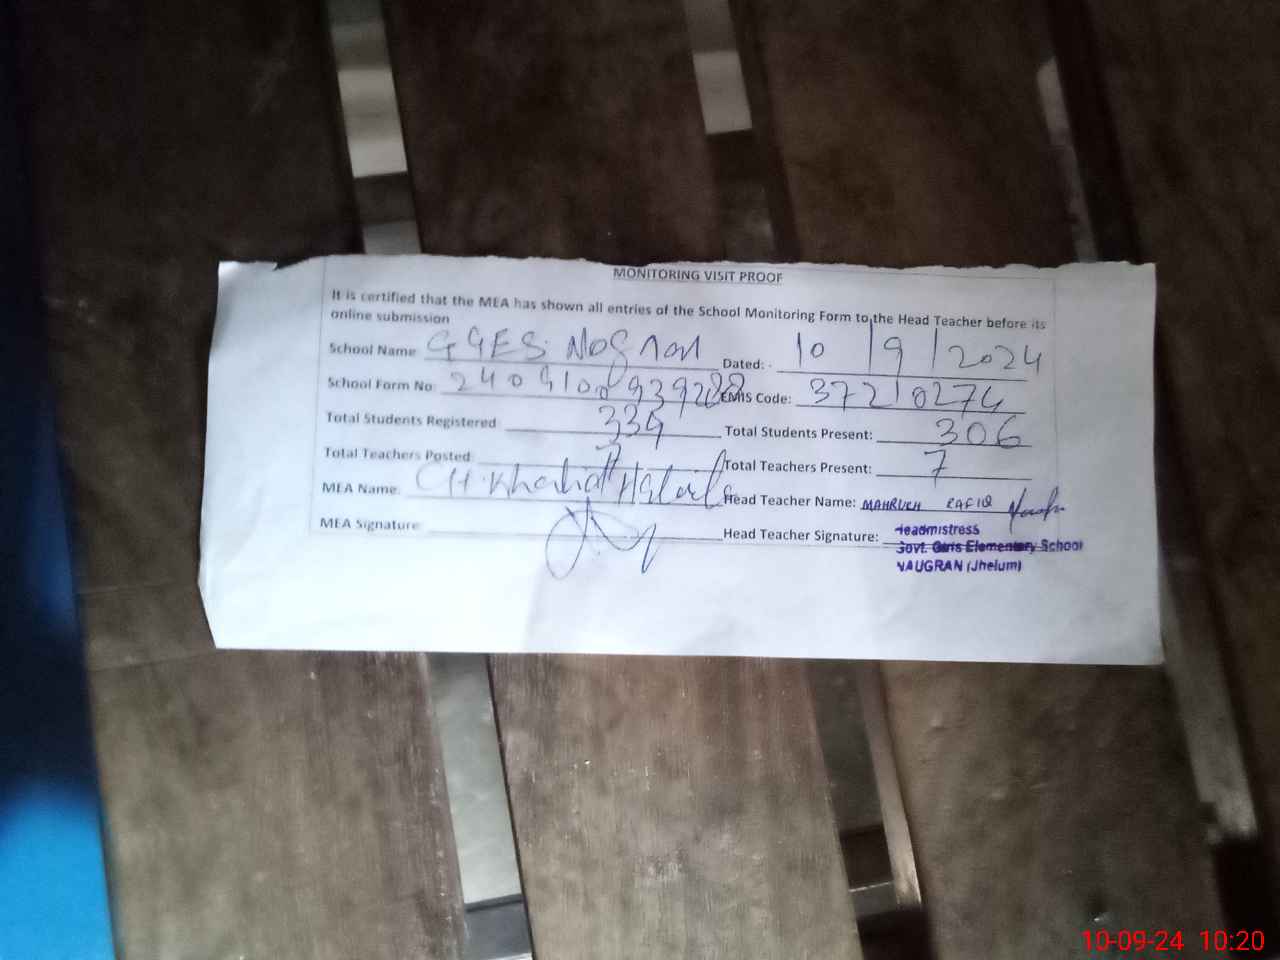 MONITORING VISIT PROOF
It is certified that the MEA has shown all entries of the School Monitoring Form to the Head Teacher before its
online submission
School Name GGES Dated: - 10/9/2024
School Form No: EMIS Code: 37210274
Total Students Registered: 339 Total Students Present: 306
Total Teachers Posted: 7 Total Teachers Present: 7
MEA Name: CH. Head Teacher Name: MAHRUKH RAFIQ
MEA Signature: Head Teacher Signature:
Headmistress
Govt. Girls Elementary School
NAUGRAN (Jhelum)
10-09-24 10:20